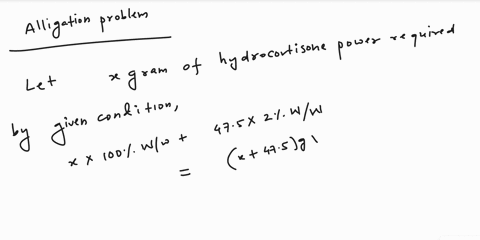 Alligation problem
Let x gram of hydrocortisone power required
by given condition,
x × 100% W/w + 47.5 × 2% W/W
= (x + 47.5)g \